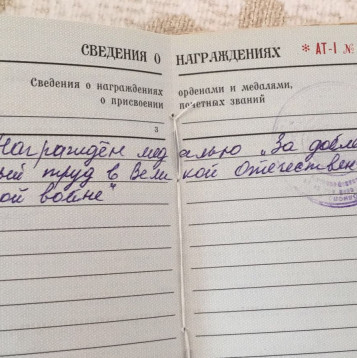 СВЕДЕНИЯ О НАГРАЖДЕНИЯХ * АТ-I №
Сведения о награждениях орденами и медалями,
о присвоении почетных званий
3
Награждён медалью „За добле
ный труд в Вели кой Отечествен
ой войне"